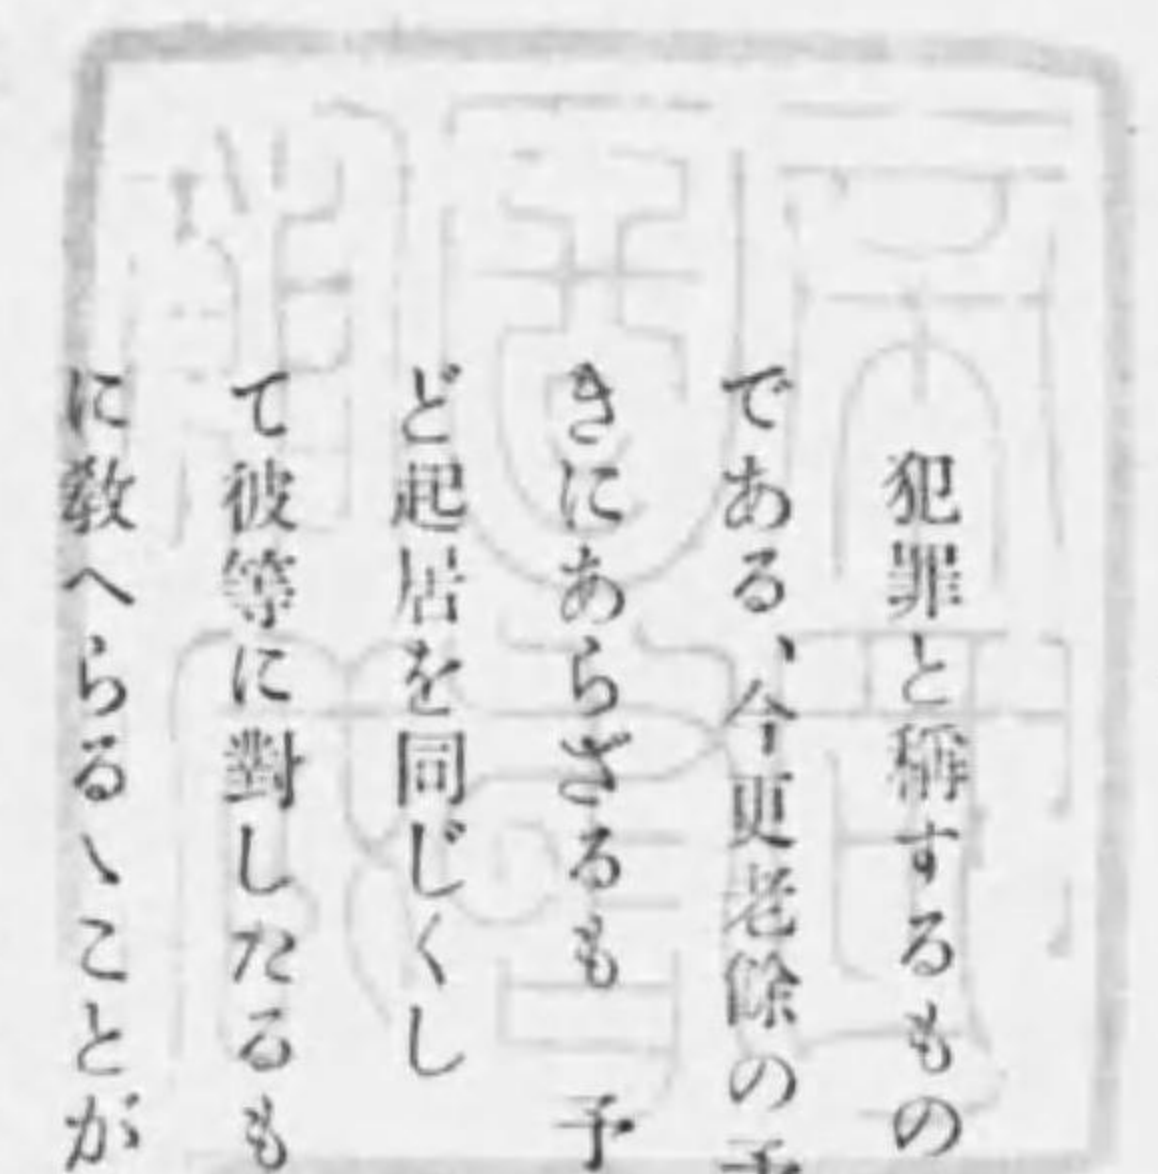 犯罪と稱するもの
である、今更老餘の予
きにあらざるも　予
ど起居を同じくし
て彼等に對したるも
に敎へらるゝことが